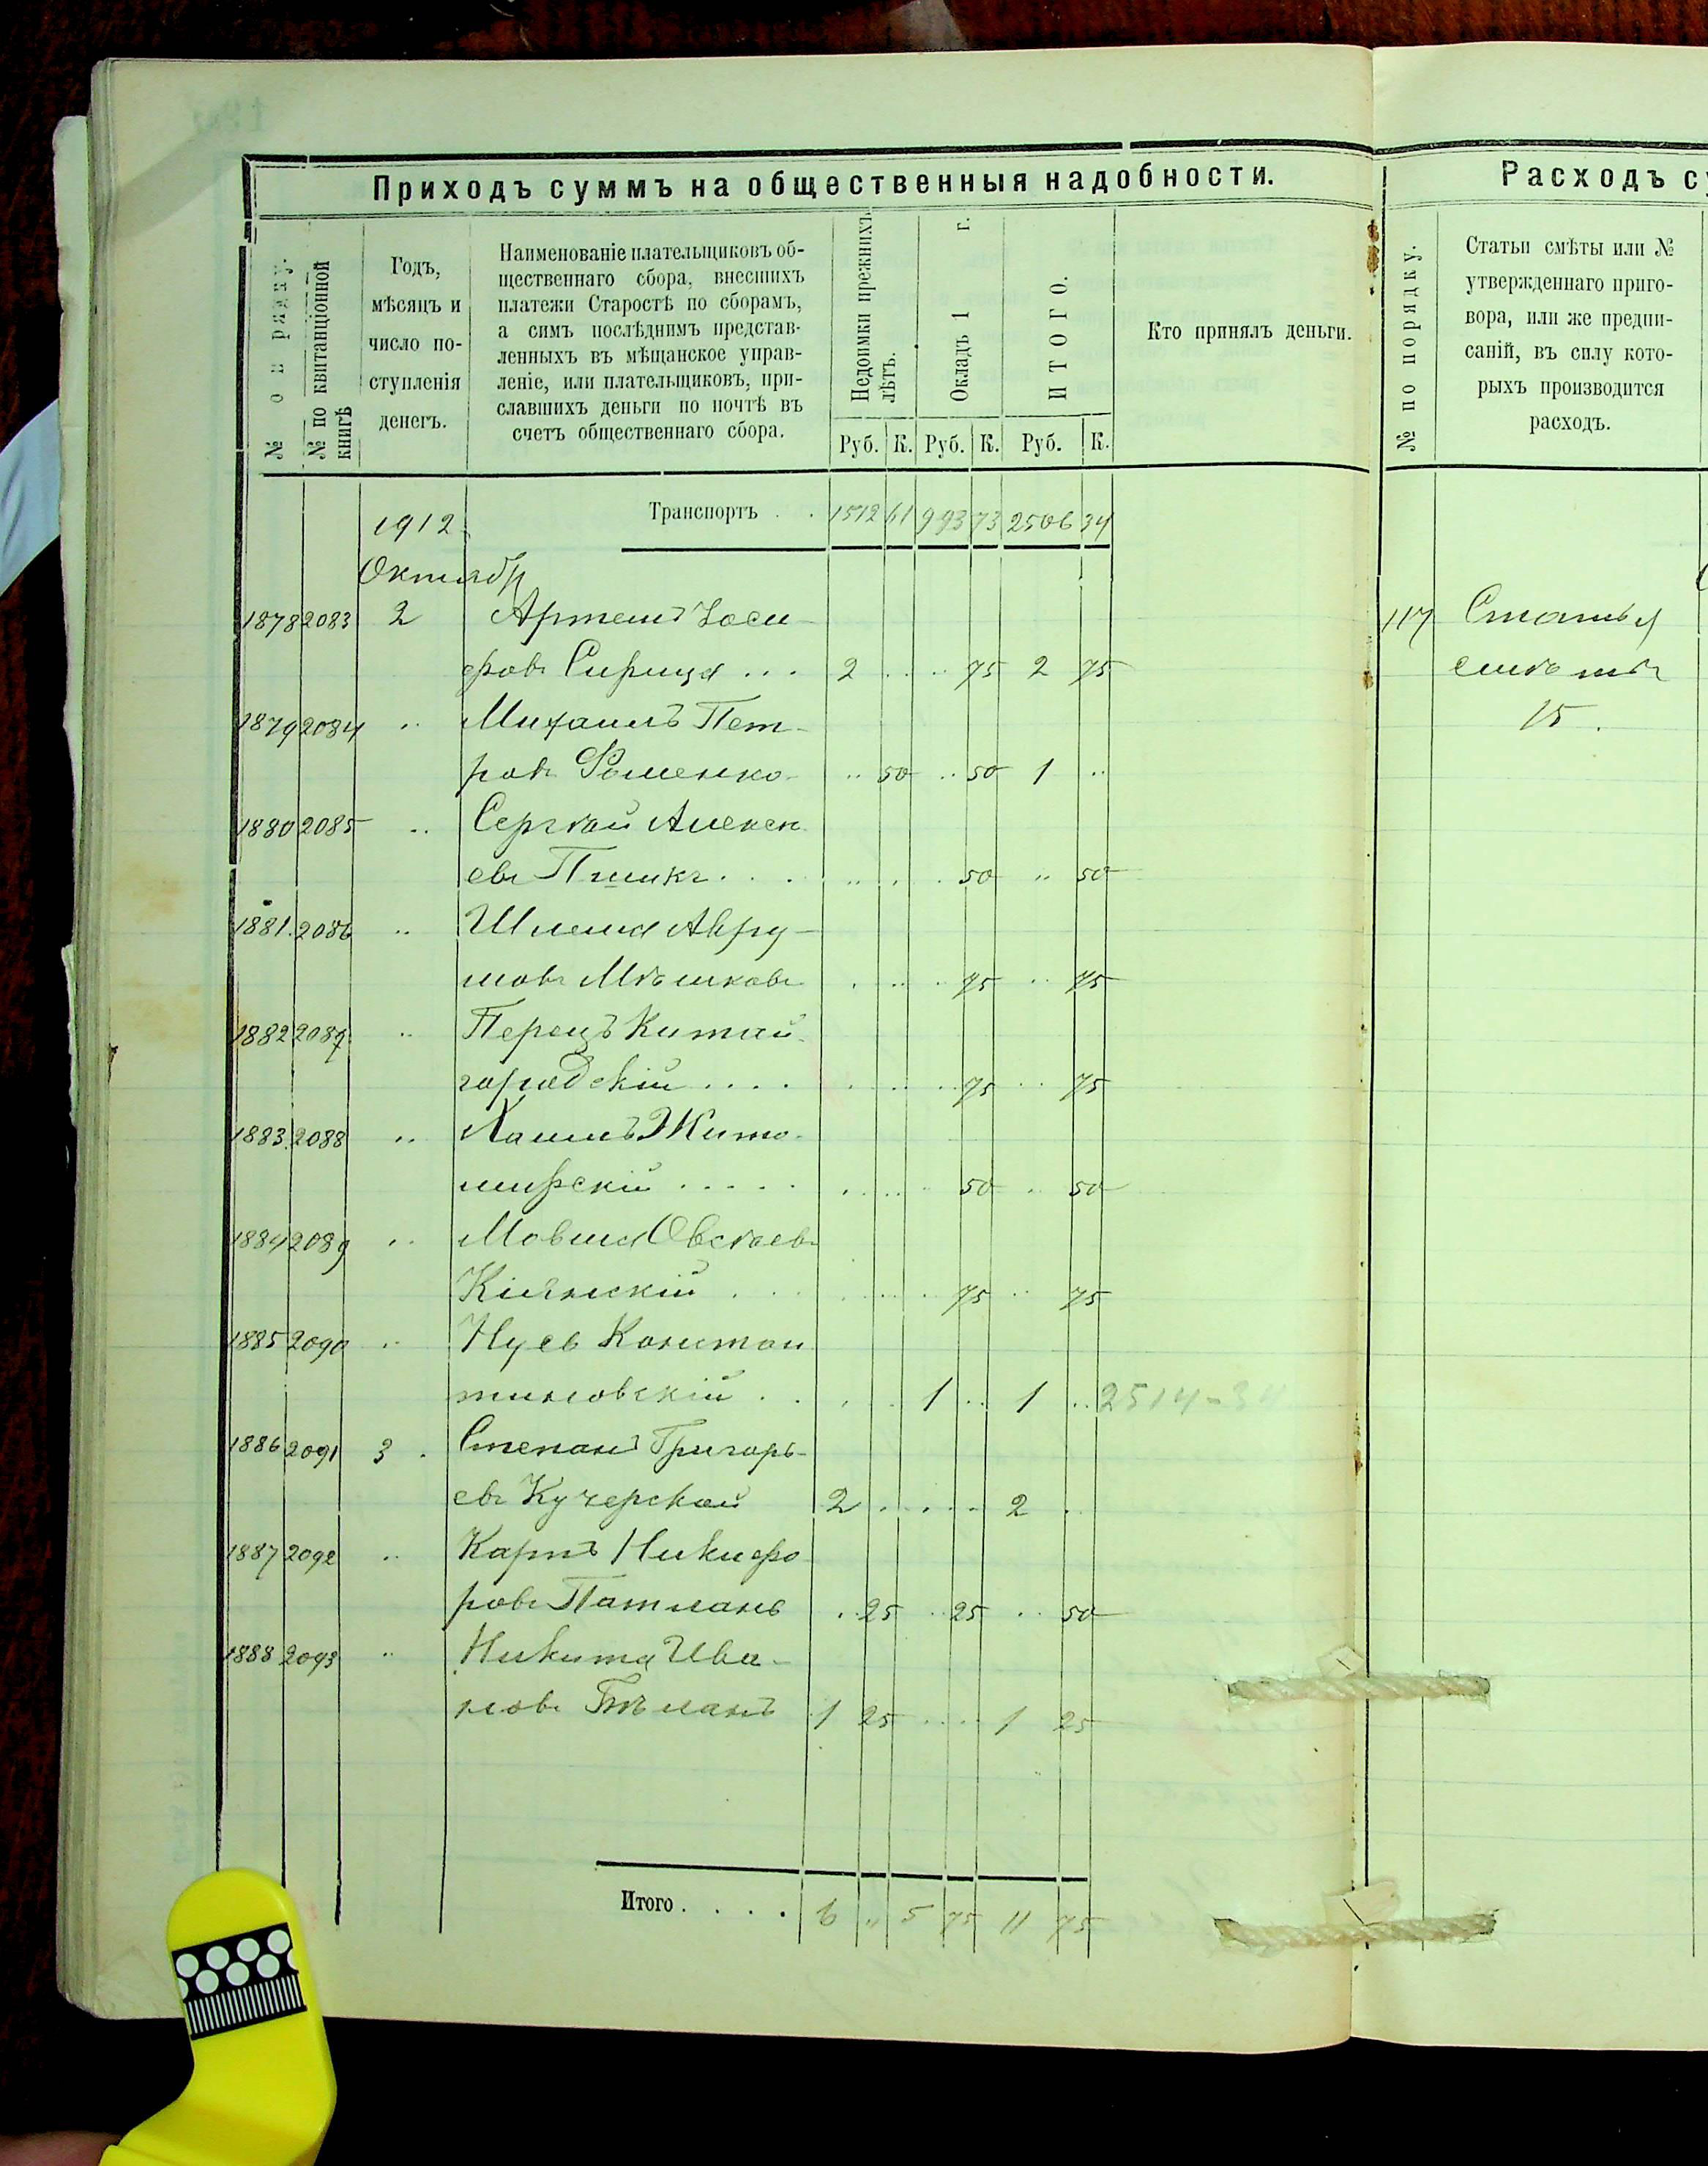 Приходъ суммъ на общественныя надобности.
№ по порядку.
№ по квитанціонной книгѣ
Годъ, мѣсяцъ и число поступленія денегъ.
Наименованіе плательщиковъ об-
щественнаго сбора, внесшихъ
платежи Старостѣ по сборамъ,
а симъ послѣднимъ представ-
ленныхъ въ мѣщанское управ-
леніе, или плательщиковъ, при-
славшихъ деньги по почтѣ въ
счетъ общественнаго сбора.
Недоимки прежнихъ лѣтъ.
Окладъ 1 г.
ИТОГО.
Руб. К. Руб. К. Руб. К.
Кто принялъ деньги.
1912 Транспортъ . . 1512 61 993 73 2506 34
Октябр
1878 2083 2 Артемъ Іоси-
фовъ Сирица ... 2 .. .. 75 2 75
1879 2084 .. Михаилъ Пет-
ровъ Фоменко .. 50 .. 50 1 ..
1880 2085 .. Сергѣй Алексѣ
евъ . . . .. . . 50 .. 50
1881. 2086 .. Шлема Авру-
мовъ Мѣшковъ . .. . 75 .. 75
1882 2087 .. Перецъ Китай-
городскій .... . .. .. 75 .. 75
1883. 2088 .. Хаимъ Жито-
мирскій ..... . .. .. 50 .. 50
1884 2089 .. Мовша Овсѣевъ
. . . . .. . 75 .. 75
1885 2090 .. Нусь
тиновскій . . . . 1 .. 1 .. 2514-34
1886 2091 3 . Степанъ Григорь-
евъ Кучерской 2 . . .. 2 .
1887 2092 .. Карпъ Никифо
ровъ Патлань .. 25 .. 25 .. 50
1888 2093 .. Никита Ива-
новъ 1 25 .. .. 1 25
Итого . . . . 6 " 5 75 11 75
Расходъ с
№ по порядку.
Статьи смѣты или №
утвержденнаго приго-
вора, или же предпи-
саній, въ силу кото-
рыхъ производится
расходъ.
117 Статья
смѣты
15.